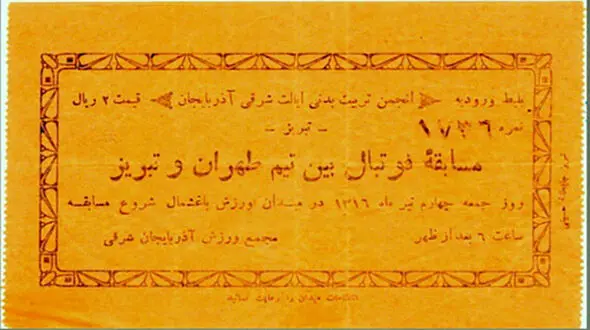 بلیط ورودیه انجمن تربیت بدنی ایالت شرقی آذربایجان قیمت ۲ ریال
نمره ۱۷۳۶ – تبریز –
مسابقهٔ فوتبال بین تیم طهران و تبریز
روز جمعه چهارم تیر ماه ۱۳۱۶ در میدان ورزش باغشمال شروع مسابقه
ساعت ۶ بعد از ظهر مجمع ورزش آذربایجان شرقی
انتظامات میدان را رعایت نمائید